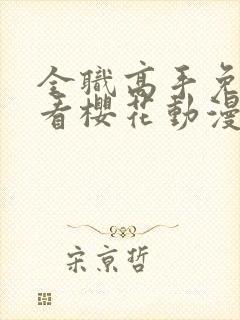 全職高手免
看櫻花動漫
宋京哲